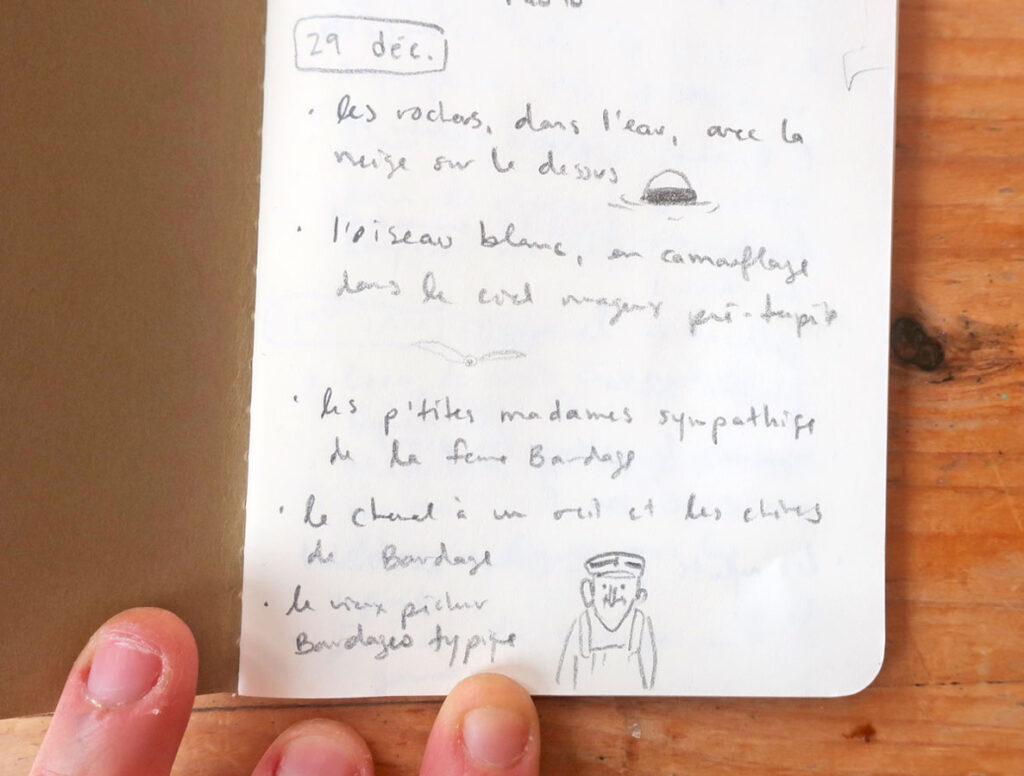 29 déc.
· les rochers, dans l'eau, avec la
neige sur le dessus
· l'oiseau blanc, en camouflage
dans le ciel nuageux
· les p'tites madames sympathiqe
de la ferme Bardage
· le cheval à un oeil et les chèvres
de Bardage
· le vieux pêcheur
Bardageo typique